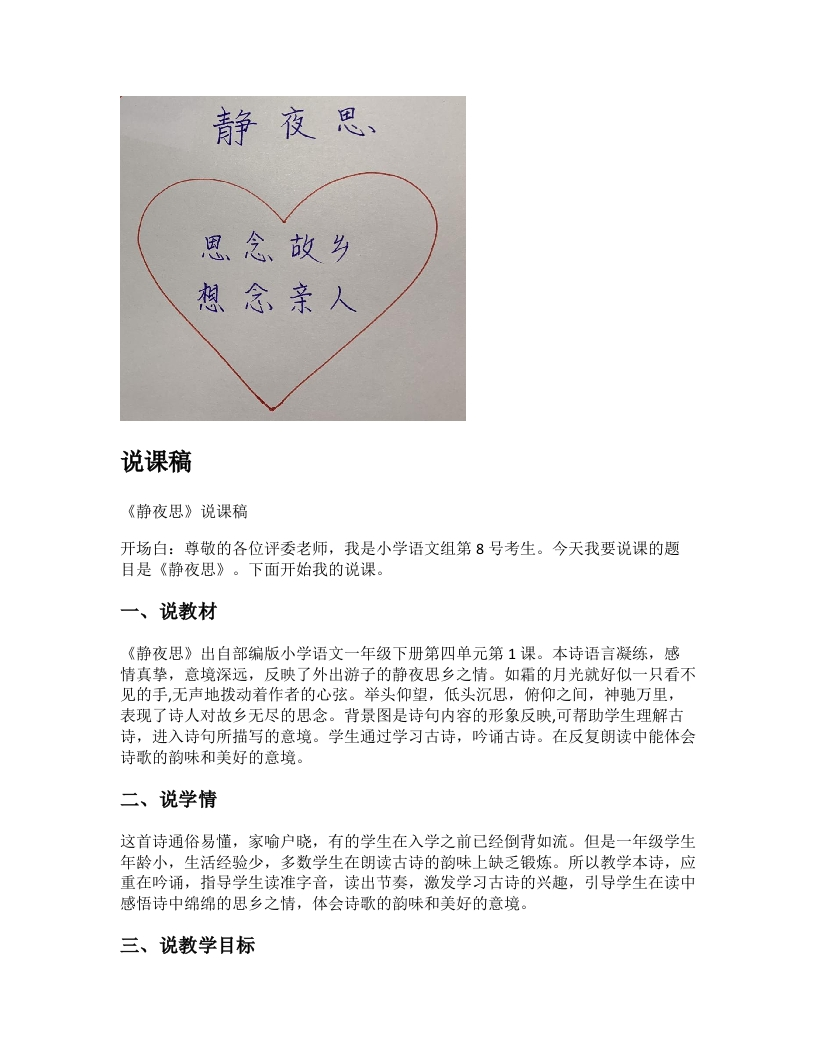 静夜思
思念故乡
想念亲人
说课稿
《静夜思》说课稿
开场白：尊敬的各位评委老师，我是小学语文组第 8 号考生。今天我要说课的题
目是《静夜思》。下面开始我的说课。
一、说教材
《静夜思》出自部编版小学语文一年级下册第四单元第 1 课。本诗语言凝练，感
情真挚，意境深远，反映了外出游子的静夜思乡之情。如霜的月光就好似一只看不
见的手,无声地拨动着作者的心弦。举头仰望，低头沉思，俯仰之间，神驰万里，
表现了诗人对故乡无尽的思念。背景图是诗句内容的形象反映,可帮助学生理解古
诗，进入诗句所描写的意境。学生通过学习古诗，吟诵古诗。在反复朗读中能体会
诗歌的韵味和美好的意境。
二、说学情
这首诗通俗易懂，家喻户晓，有的学生在入学之前已经倒背如流。但是一年级学生
年龄小，生活经验少，多数学生在朗读古诗的韵味上缺乏锻炼。所以教学本诗，应
重在吟诵，指导学生读准字音，读出节奏，激发学习古诗的兴趣，引导学生在读中
感悟诗中绵绵的思乡之情，体会诗歌的韵味和美好的意境。
三、说教学目标